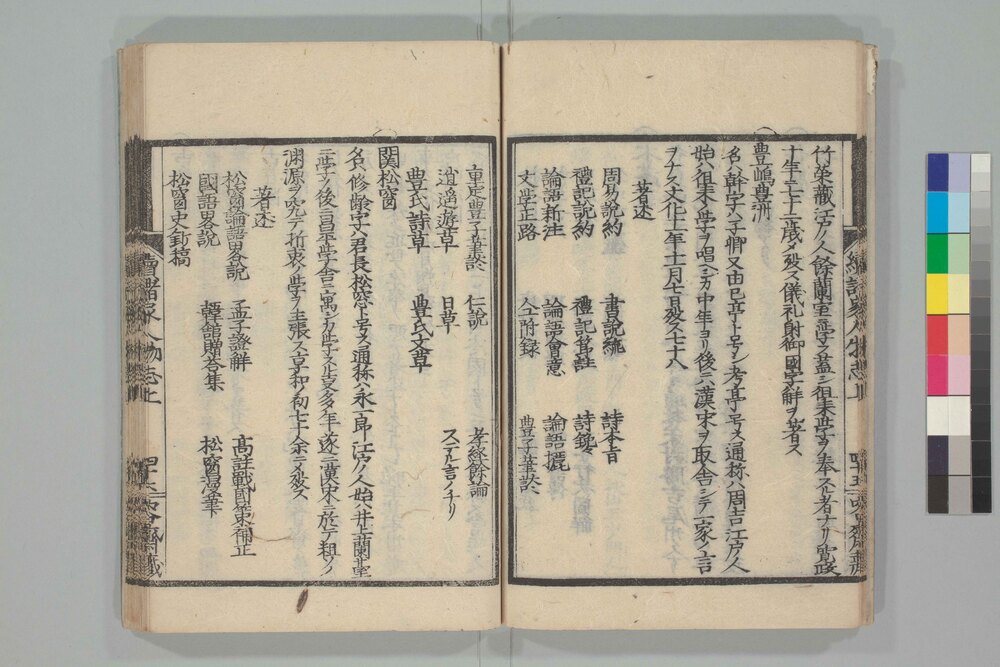 竹栄蔵江戸ノ人餘蘭室ニ学フ蓋シ徂来学ヲ奉スル者ナリ寛政
十年二十二歳ニメ殁ス儀礼射御國字解ヲ著ス
豊嶋豊洲
名ハ幹字ハ子卿又由己亭ト号シ考亭号ス通称ハ周吉江戸ノ人
始ハ徂来ノ学ヲ唱シカ中年ヨリ後ニハ漢宋ヲ取舎シテ一家ノ言
ヲナス文化十一年十一月七日殁ス七十八
著述
周易説約 書説統 詩本旨
禮記説約 禮記筭註 詩鈔
論語新注 論語會意 論語攦
文学正路 仝附録 豊子筆談
重定豊子筆談 仁説 孝経餘論
逍遥遊草 日草 スアル言ノチリ
豊氏詩草 豊氏文草
関松窗
名ハ修齢字ハ君長松窓ト号ス通称ハ永一郎江戸ノ人始ハ井上蘭䑓
ニ学ヒ後ニ昌平学舎ニ寓シ力学スル亥多年遂ニ漢宋ニ於テ粗ソノ
渊源ヲ究テ折衷ノ学ヲ主張ス享和ノ初七十余ニメ殁ス
著述
松窗論語畧説 孟子證解 高註戦國策補正
國語畧説 韓館贈荅集 松窗漫筆
松窗史鈔稿
續諸家人物志上